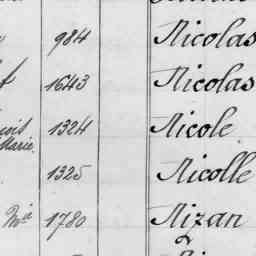 984 Nicolas
1643 Nicolas
1324 Nicole
Marie.
1325 Nicolle
1780 Nizan